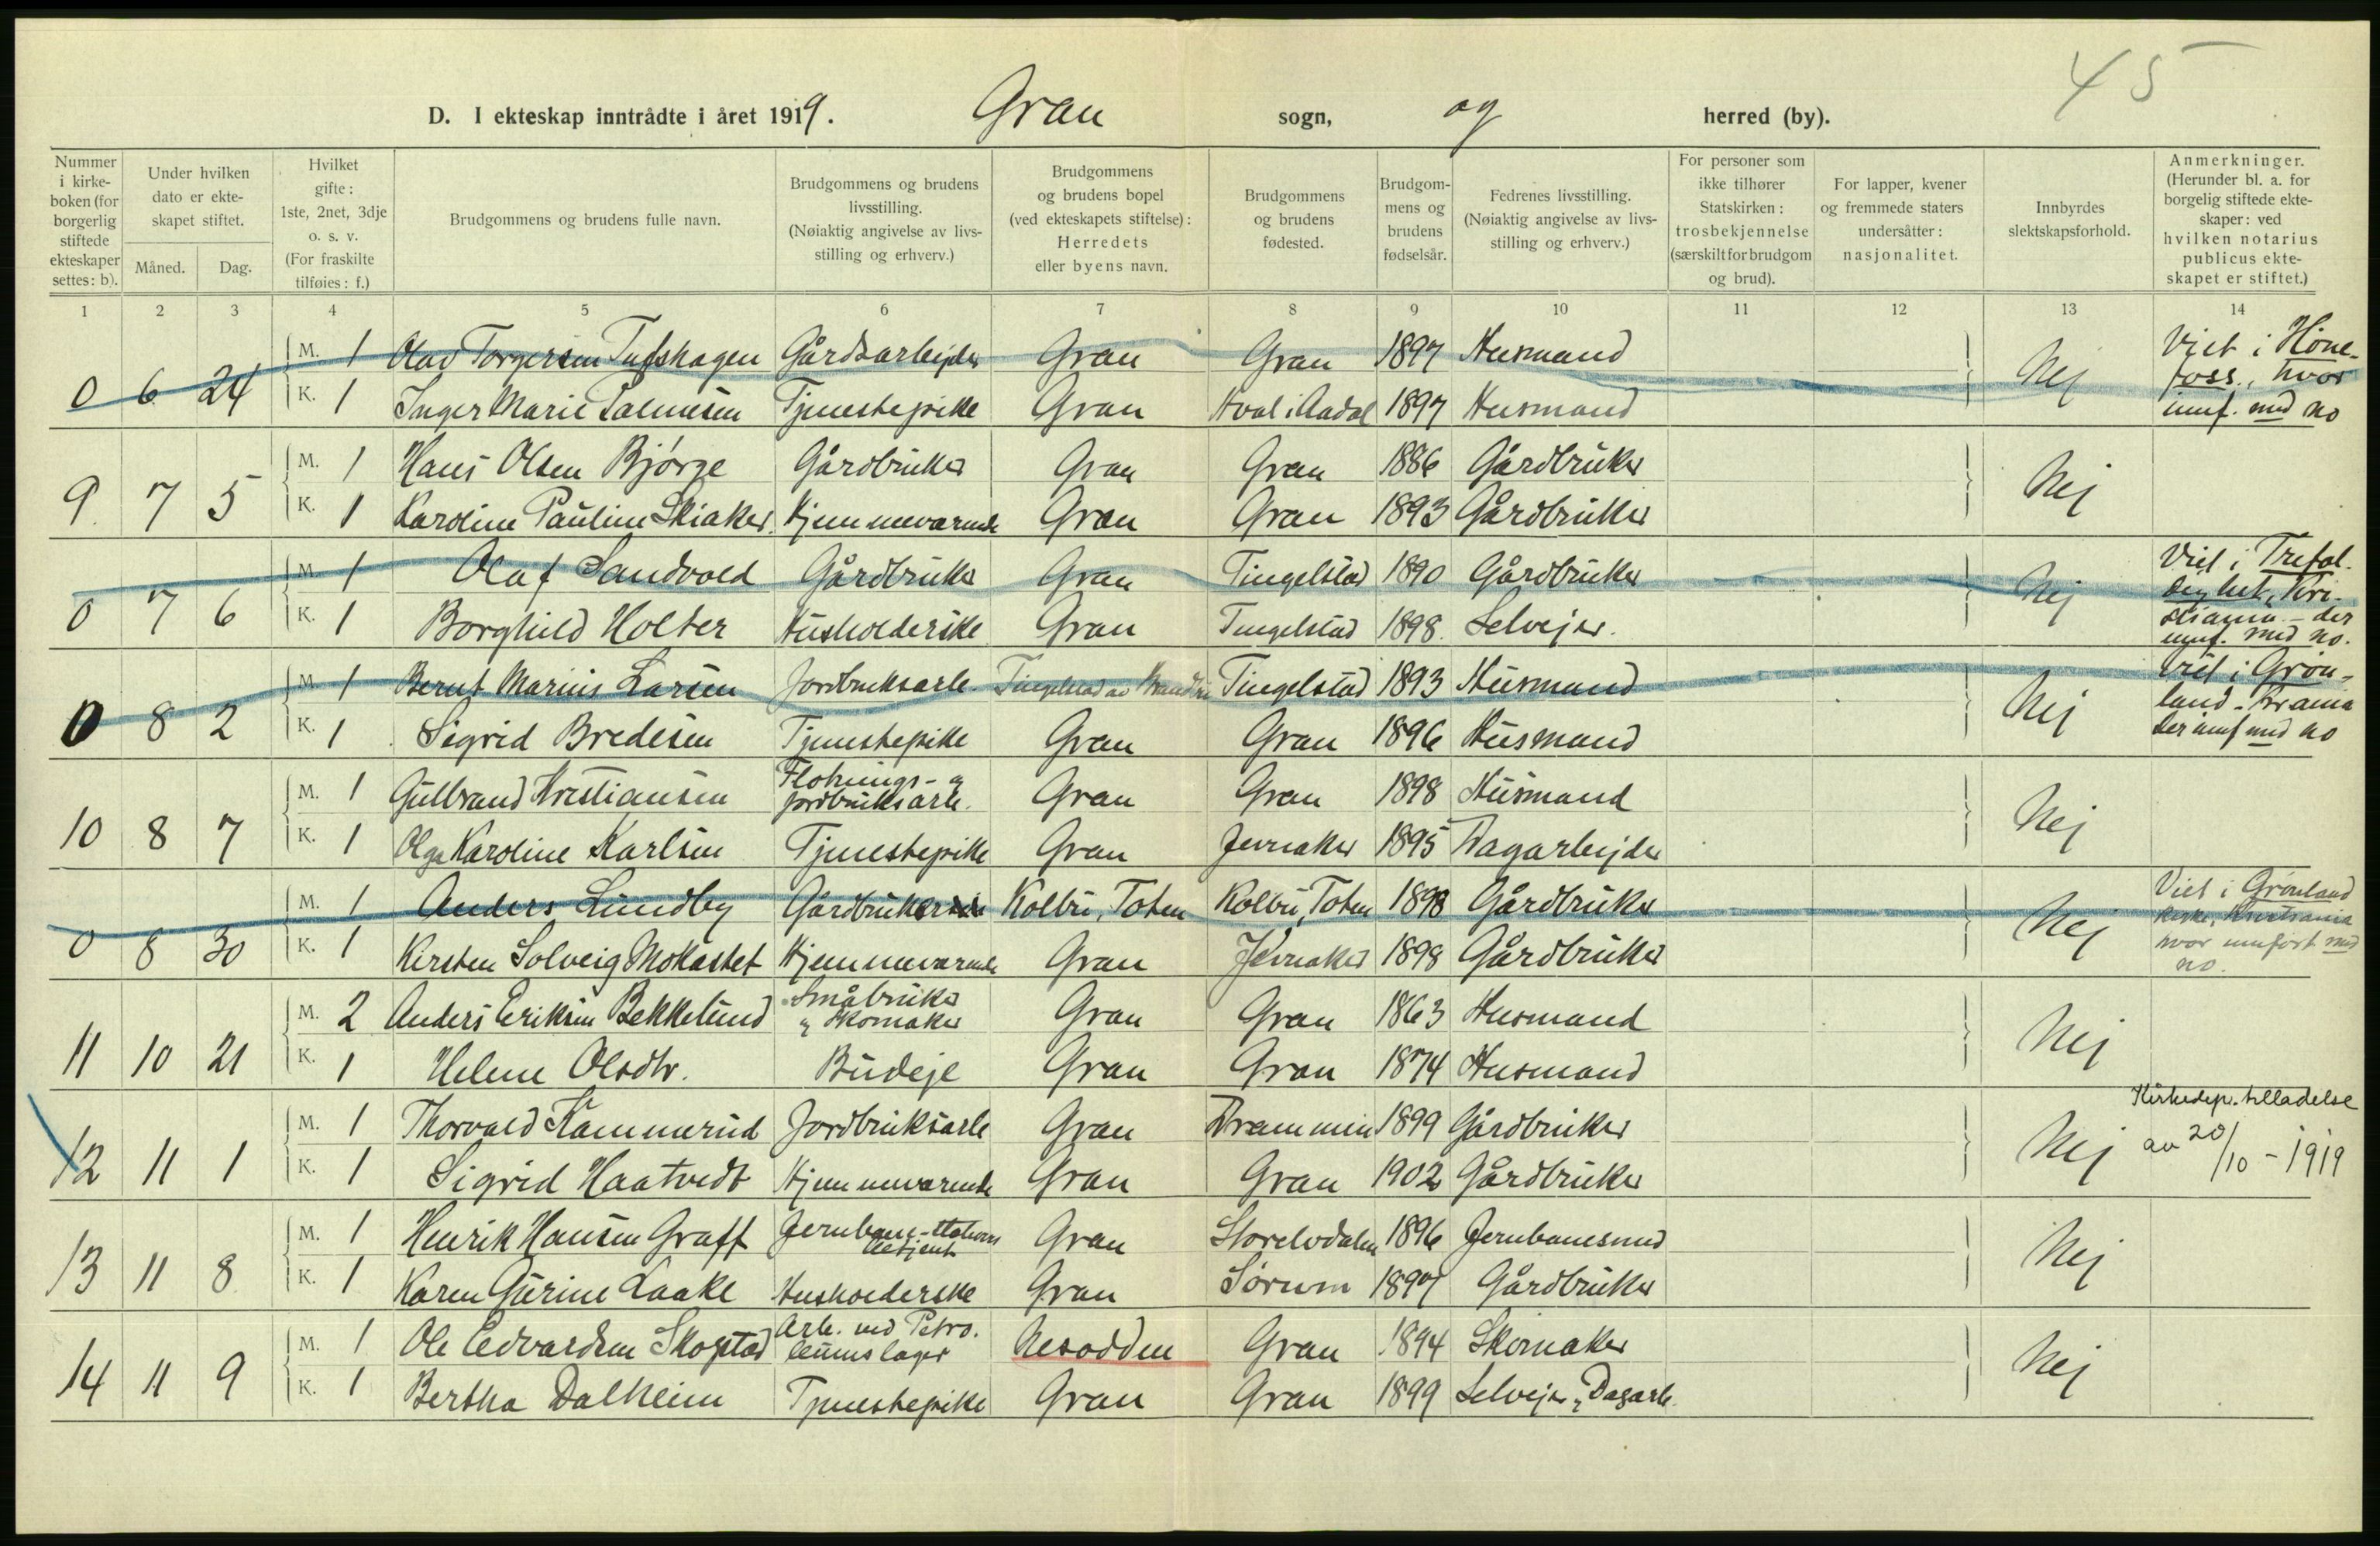 45
D. I ekteskap inntrådte i året 1919. Gran sogn, og herred (by).
Nummer i kirkeboken (for borgerlig stiftede ekteskaper settes: b).
Under hvilken dato er ekteskapet stiftet.
Måned. Dag.
Hvilket gifte: 1ste, 2net, 3dje o. s. v. (For fraskilte tilføies: f.)
Brudgommens og brudens fulle navn.
Brudgommens og brudens livsstilling. (Nøiaktig angivelse av livsstilling og erhverv.)
Brudgommens og brudens bopel (ved ekteskapets stiftelse): Herredets eller byens navn.
Brudgommens og brudens fødested.
Brudgommens og brudens fødselsår.
Fedrenes livsstilling. (Nøiaktig angivelse av livsstilling og erhverv.)
For personer som ikke tilhører Statskirken: trosbekjennelse (særskilt for brudgom og brud).
For lapper, kvener og fremmede staters undersåtter: nasjonalitet.
Innbyrdes slektskapsforhold.
Anmerkninger. (Herunder bl. a. for borgelig stiftede ekteskaper: ved hvilken notarius publicus ekteskapet er stiftet.)
1 2 3 4 5 6 7 8 9 10 11 12 13 14
M. 1 Olav Torgersen Tufshagen Gårdsarbejder Gran Gran 1897 Husmand
0 6 24 K. 1 Inger Marie Palmesen Tjenestepike Gran Hval i Aadal 1897 Husmand Nej Viet i Hønefoss, hvor innf. med no
M. 1 Hans Olsen Bjørge Gårdbruker Gran Gran 1886 Gårdbruker
9 7 5 K. 1 Karoline Pauline Skiaker Hjemmeværende Gran Gran 1893 Gårdbruker Nej
M. 1 Olaf Sandvold Gårdbruker Gran Tingelstad 1890 Gårdbruker
0 7 6 K. 1 Borghild Holter Husholderske Gran Tingelstad 1898 Selvejer. Nej Viet i Trefoldighet, Kristiania - der innf. med no.
M. 1 Bernt Marius Larsen Jordbruksarb. Tingelstad av Brandbu Tingelstad 1893 Husmand
0 8 2 K. 1 Sigrid Bredesen Tjenestepike Gran Gran 1896 Husmand Nej Viet i Grønland - Krania der innf med no
M. 1 Gulbrand Kristiansen Fløtnings- og jordbruksarb. Gran Gran 1898 Husmand
10 8 7 K. 1 Olga Karoline Karlsen Tjenestepike Gran Jevnaker 1895 Dagarbejder Nej
M. 1 Anders Lundby Gårdbruker Kolbu, Toten Kolbu, Toten 1898 Gårdbruker
0 8 30 K. 1 Kirsten Solveig Mokastet Hjemmeværende Gran Jevnaker 1898 Gårdbruker Nej Viet i Grønland kirke, Kristiania hvor innført med no.
M. 2 Anders Eriksen Bekkelund Småbruker og skomaker Gran Gran 1863 Husmand
11 10 21 K. 1 Helene Olsdtr. Budeje Gran Gran 1874 Husmand Nej
M. 1 Thorvald Kammerud Jordbruksarb Gran Drammen 1899 Gårdbruker
12 11 1 K. 1 Sigrid Haatvedt Hjemmeværende Gran Gran 1902 Gårdbruker Nej Kirkedep. tilladelse av 20/10 - 1919
M. 1 Henrik Hansen Graff Jernbane-stations betjent Gran Storelvdalen 1896 Jernbanesmed
13 11 8 K. 1 Karen Gurine Laake Husholderske Gran Sørum 1897 Gårdbruker Nej
M. 1 Ole Edvardsen Skogstad Arb. ved Petroleumslager Nesodden Gran 1894 Skomaker
14 11 9 K. 1 Bertha Dalheim Tjenestepike Gran Gran 1899 Selvejer, Dagarb. Nej